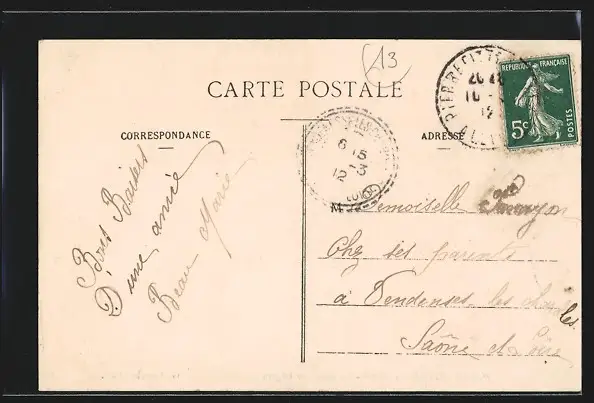 13
CARTE POSTALE
CORRESPONDANCE
ADRESSE
REPUBLIQUE FRANÇAISE
5c
POSTES
6 15
12-3
Bons Baisers
D'une amie
Beau Marie
Mademoiselle
Chez ses parents
à Vendenesse les
les
Saône et Loire